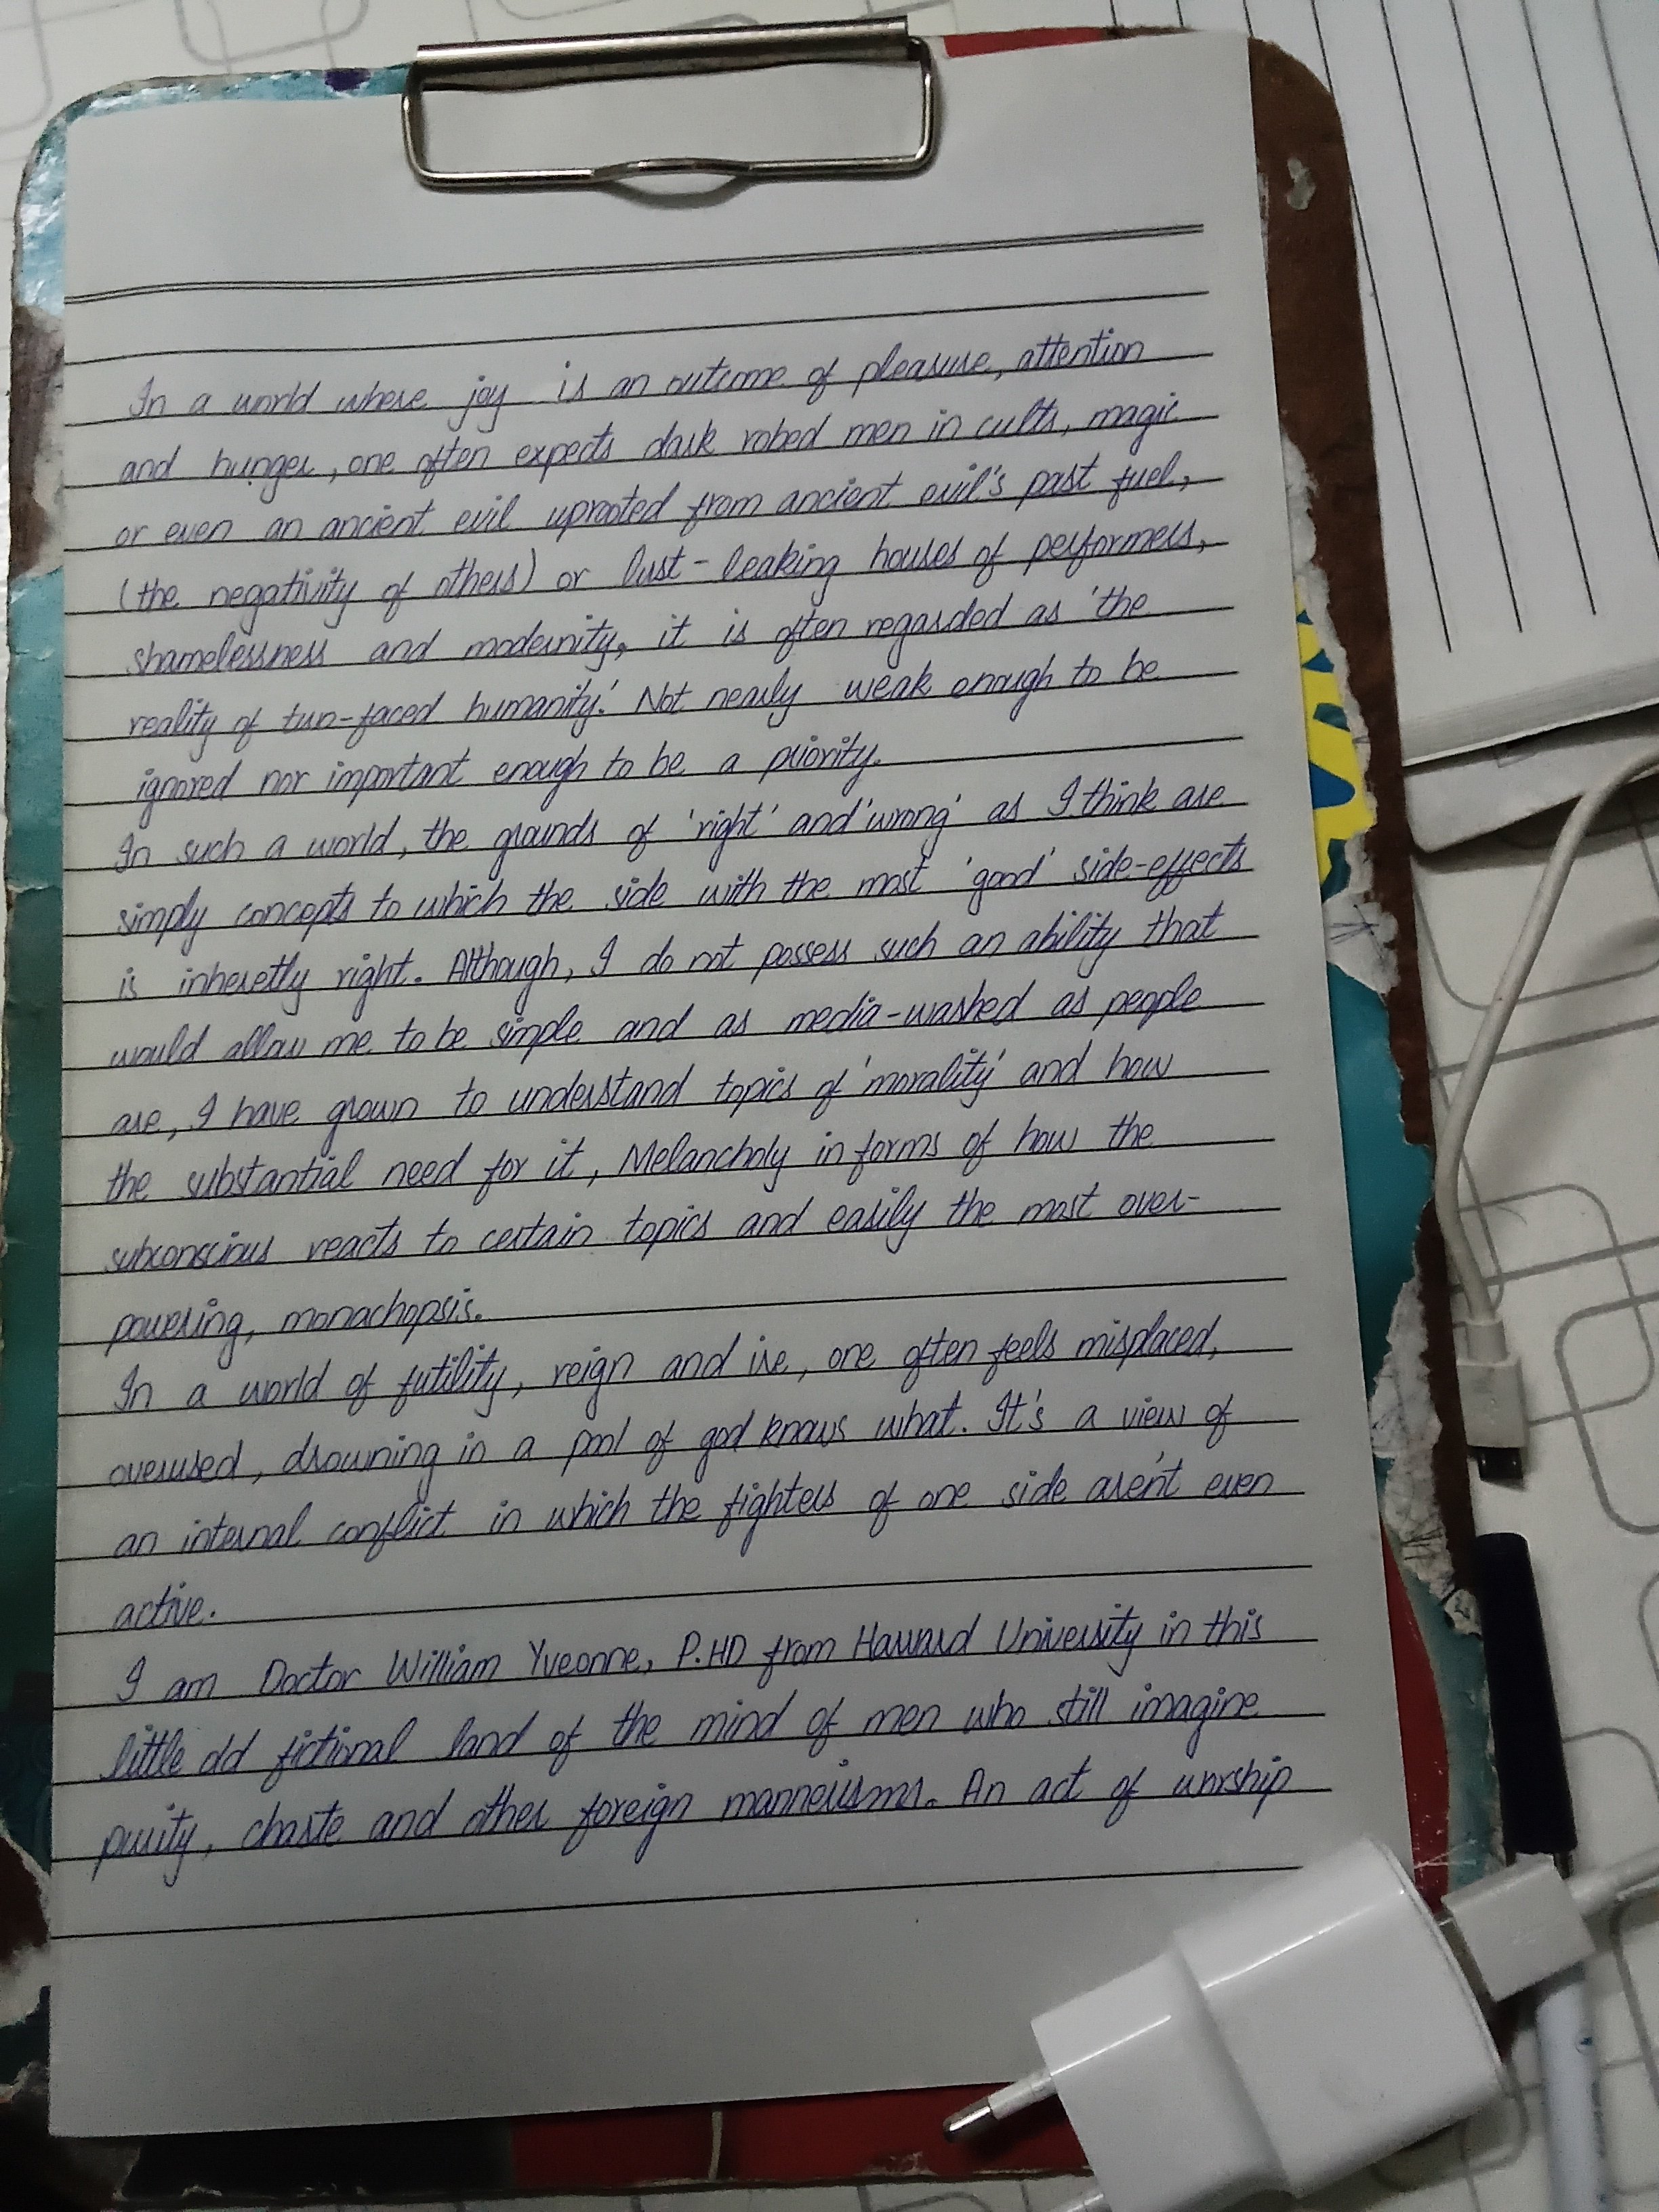 In a world where joy is an outcome of pleasure, attention
and hunger, one often expects dark robed men in cults, magic
or even an ancient evil uprooted from ancient evil's past fuel,
(the negativity of others) or lust-leaking houses of performers,
shamelessness and modernity, it is often regarded as 'the
reality of two-faced humanity.' Not nearly weak enough to be
ignored nor important enough to be a priority.
In such a world, the grounds of 'right' and 'wrong' as I think are
simply concepts to which the side with the most 'good' side-effects
is inheretly right. Although, I do not possess such an ability that
would allow me to be simple and as media-washed as people
are, I have grown to understand topics of 'morality' and how
the substantial need for it, Melancholy in forms of how the
subconscious reacts to certain topics and easily the most over-
powering, monachopsis.
In a world of futility, reign and ire, one often feels misplaced,
overused, drowning in a pool of god knows what. It's a view of
an internal conflict in which the fighters of one side aren't even
active.
I am Doctor William Yveonne, P.HD from Harvard University in this
little old fictional land of the mind of men who still imagine
purity, chaste and other foreign mannerisms. An act of worship